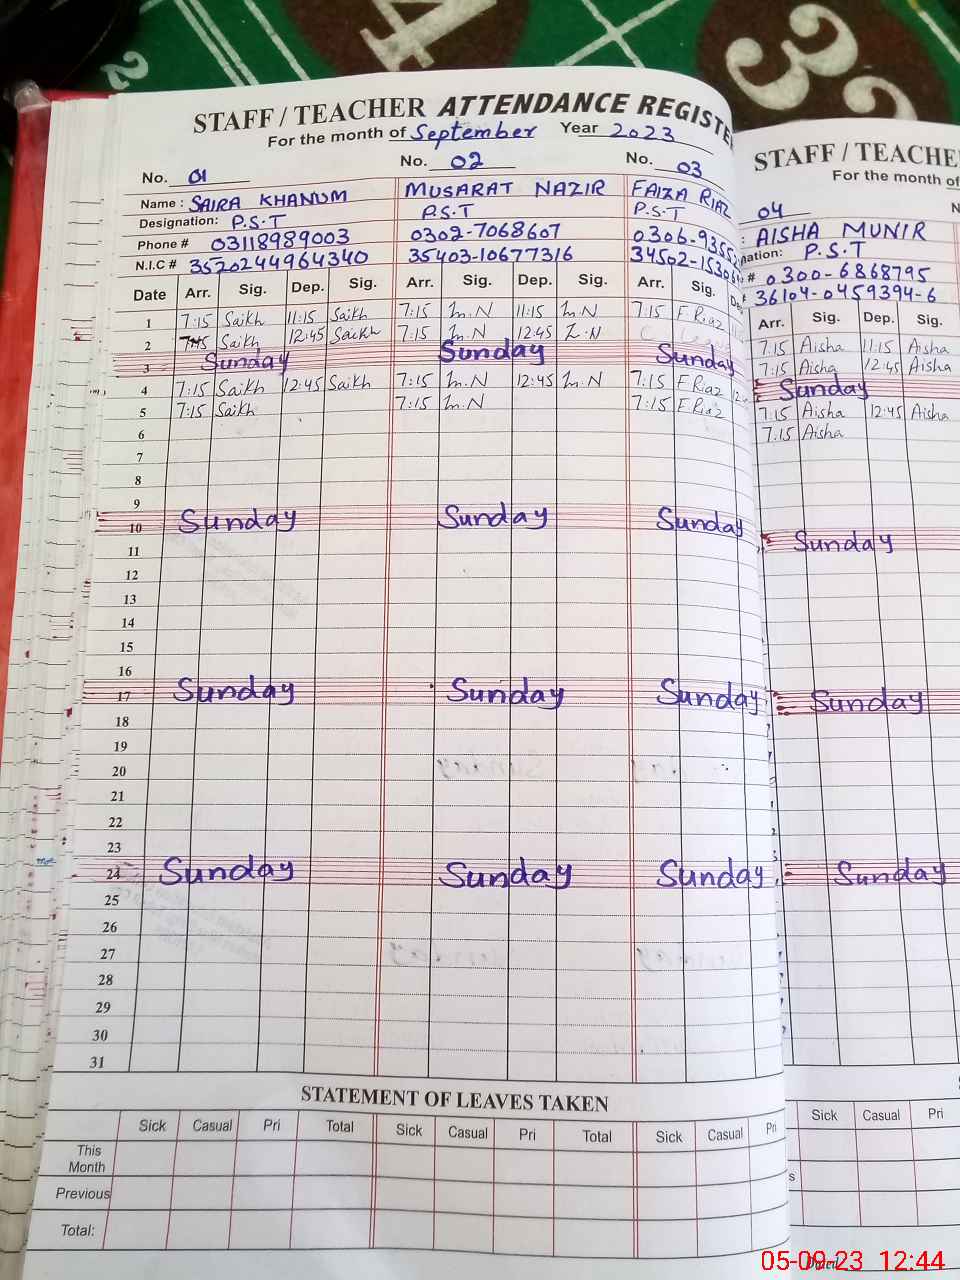 STAFF / TEACHER ATTENDANCE REGISTE
For the month of September Year 2023
No. 01 No. 02 No. 03
Name : SAIRA KHANUM MUSARAT NAZIR FAIZA RIAZ
Designation: P.S.T P.S.T P.S.T
Phone # 03118989003 0302-7068607 0306-9355
N.I.C # 3520244964340 35403-10677316 34502-15306
Date Arr. Sig. Dep. Sig. Arr. Sig. Dep. Sig. Arr. Sig. De
1 7:15 Saikh 11:15 Saikh 7:15 M.N 11:15 M.N 7:15 F Riaz
2 7:15 Saikh 12:45 Saikh 7:15 M.N 12:45 M.N
3 Sunday Sunday Sunday
4 7:15 Saikh 12:45 Saikh 7:15 M.N 12:45 M.N 7:15 F Riaz
5 7:15 Saikh 7:15 M.N 7:15 F Riaz
6
7
8
9
10 Sunday Sunday Sunday
11
12
13
14
15
16
17 Sunday Sunday Sunday
18
19
20
21
22
23
24 Sunday Sunday Sunday
25
26
27
28
29
30
31
STATEMENT OF LEAVES TAKEN
Sick Casual Pri Total Sick Casual Pri Total Sick Casual Pri
This Month
Previous
Total:
STAFF / TEACHE
For the month of
04
: AISHA MUNIR
nation: P.S.T
# 0300-6868795
36104-0459394-6
Arr. Sig. Dep. Sig.
7:15 Aisha 11:15 Aisha
7:15 Aisha 12:45 Aisha
Sunday
7:15 Aisha 12:45 Aisha
7:15 Aisha
Sunday
Sunday
Sunday
Sick Casual Pri
s
05-09-23 12:44